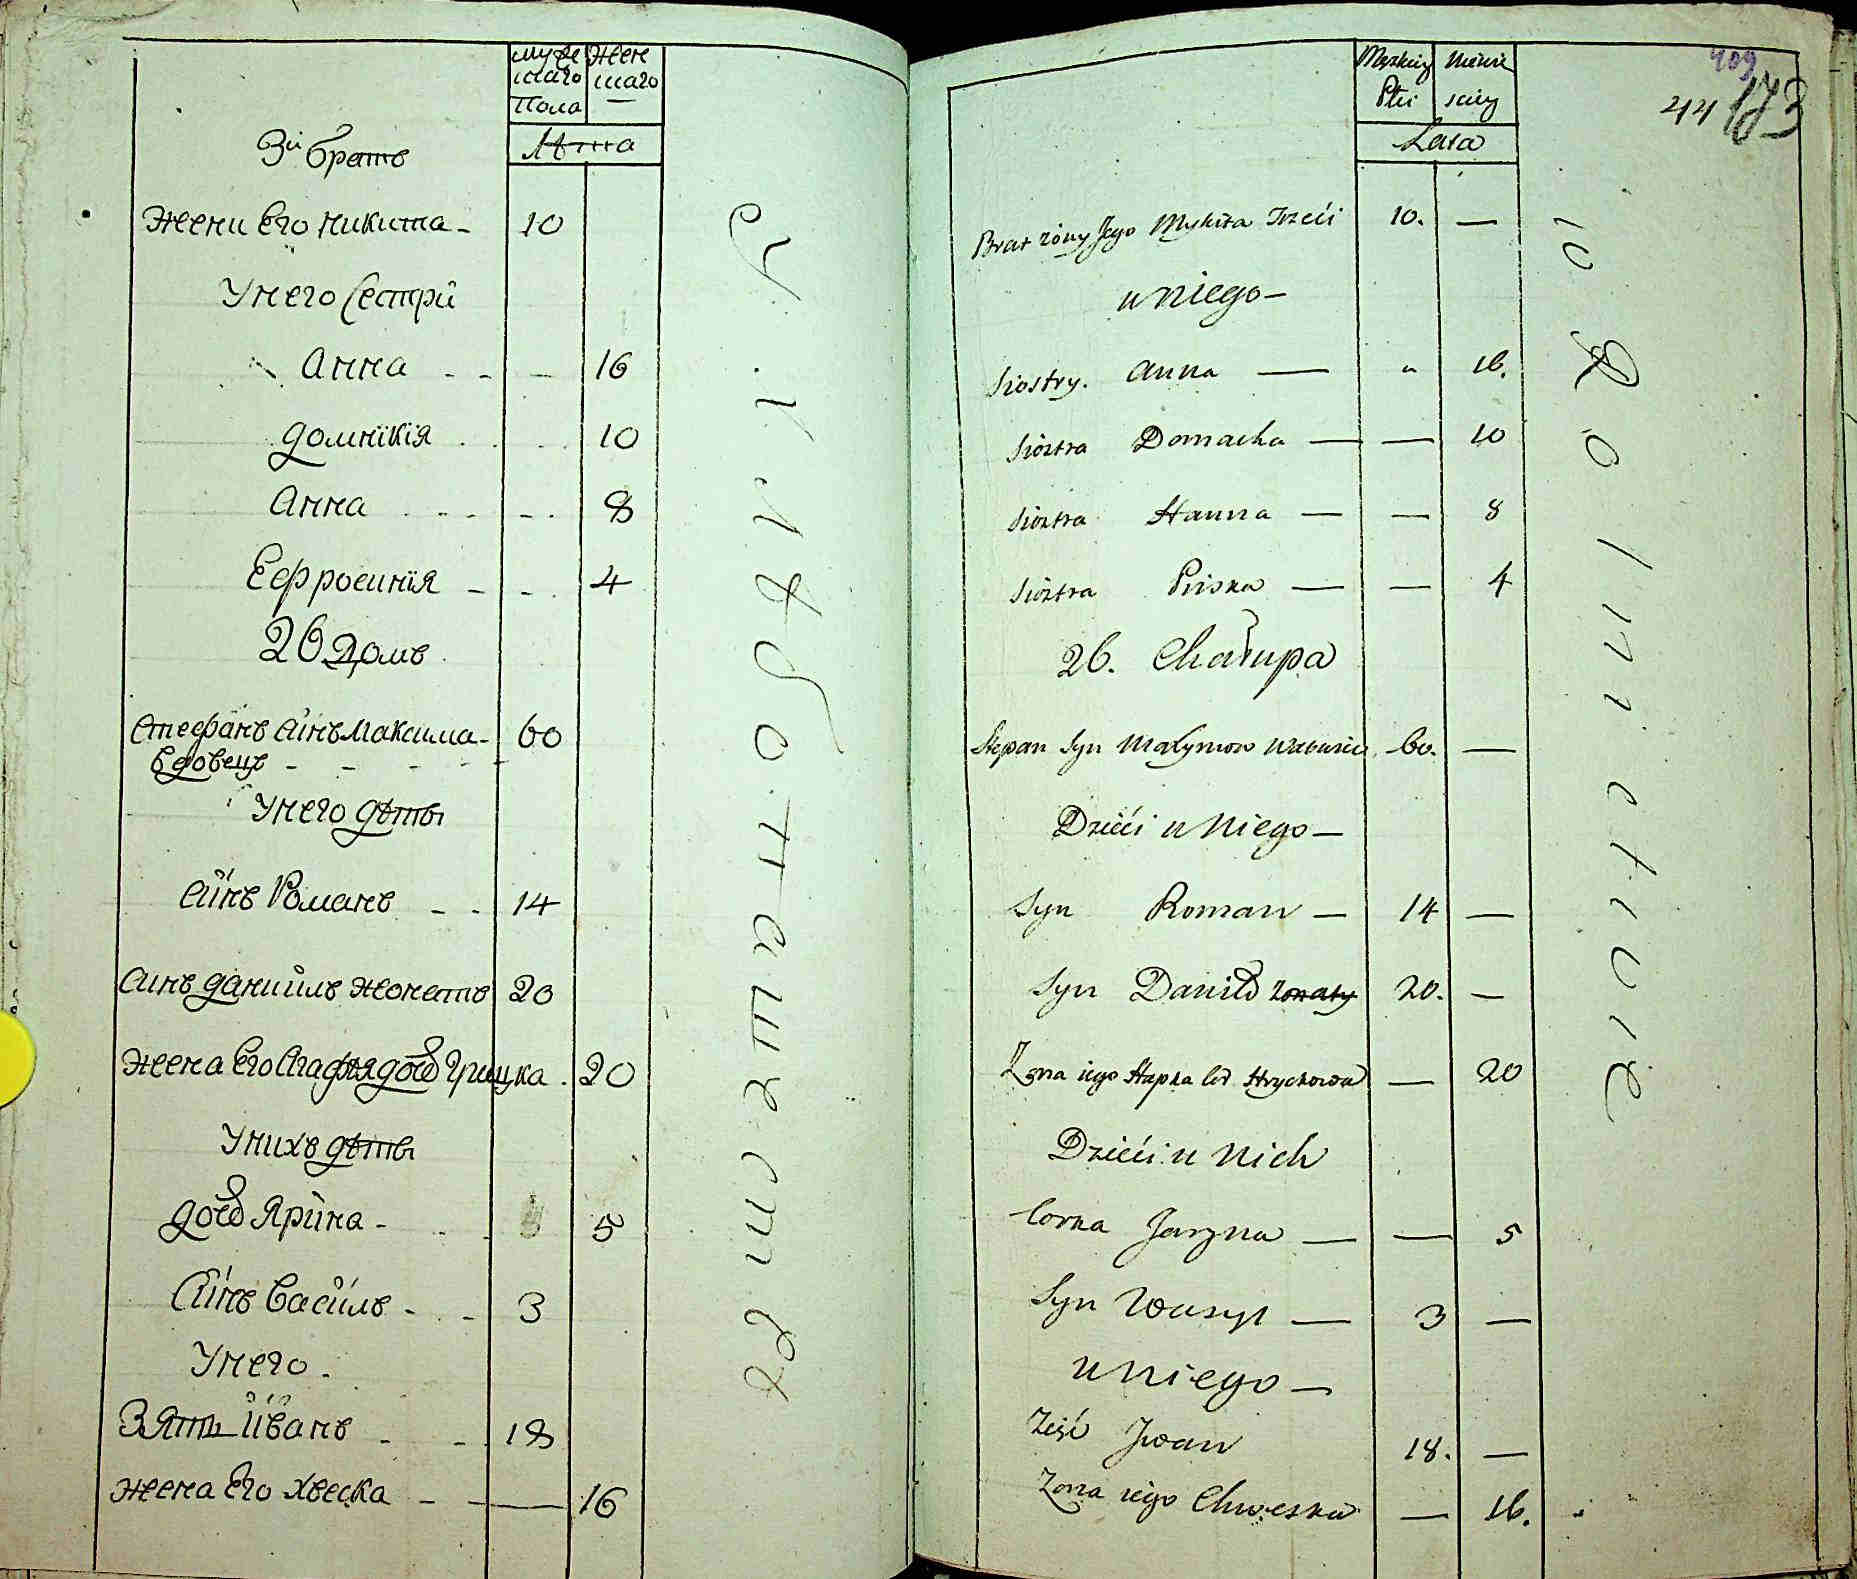 муже
скаго
пола
жен
скаго
Лѣта
3й братъ
жени Его никита - 10
У него Сестри
Анна - - - 16
домнікія - - 10
Анна - - - 8
Ефросинїя - - 4
26 Домъ
Стефанъ синъ Максима - 60
вдовецъ - - - -
У него дѣти
синъ Романъ - - 14
Синъ данийлъ жонатъ 20
жена Его Агафья доч Грицка . 20
У нихъ дѣти
доч Ярина - 5
Синъ Василь - - 3
У него -
Зять Иванъ - - 18
жена Его хвеска - - 16
Męzkiey
Płci
Lata
409
44 173
Brat żony Jego Mykita Trzeci 10. —
u niego —
Siostry. Anna — " 16.
Siostra Domacha — — 10
Siostra Hanna — — 8
Siostra — — 4
26. Chałupa
Stepan Syn 60. —
Dzieći u Niego —
Syn Roman — 14 —
Syn Daniło żonaty 20. —
Żona iego Hapka Hryckowa — 20
Dzieći u Nich
Corka Jaryna — — 5
Syn Wasyl — 3 —
u niego —
Zięć Jwan 18. —
Żona iego Chweska — 16.